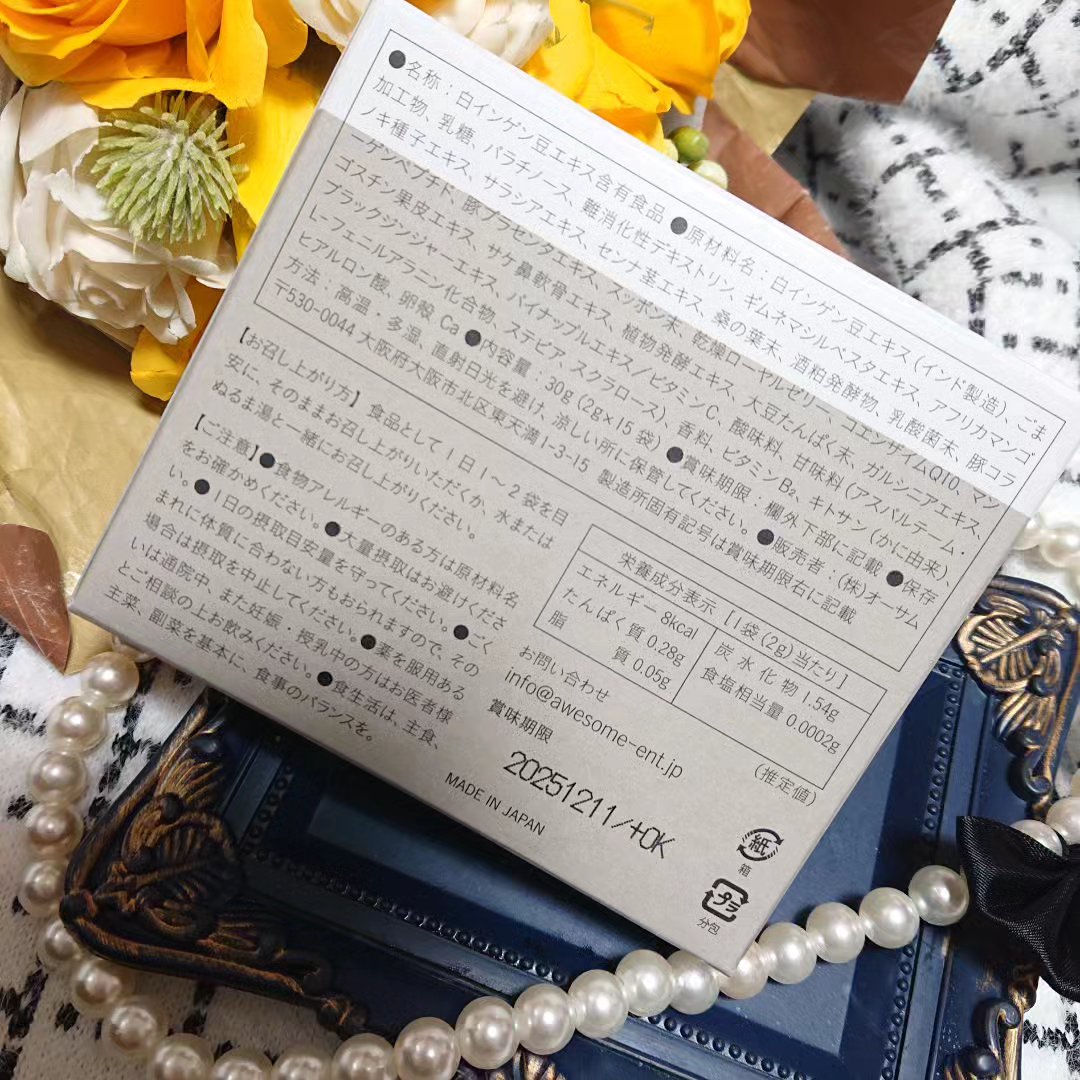 ●名称：白インゲン豆エキス含有食品 ●原材料名：白インゲン豆エキス(インド製造)、ごま
加工物、乳糖、パラチノース、難消化性デキストリン、ギムネマシルベスタエキス、アフリカマンゴ
ノキ種子エキス、サラシアエキス、センナ茎エキス、桑の葉末、酒粕発酵物、乳酸菌末、豚コラ
ーゲンペプチド、豚プラセンタエキス、スッポン末、乾燥ローヤルゼリー、コエンザイムQ10、マン
ゴスチン果皮エキス、サケ鼻軟骨エキス、植物発酵エキス、大豆たんぱく末、ガルシニアエキス、
ブラックジンジャーエキス、パイナップルエキス／ビタミンC、酸味料、甘味料(アスパルテーム・
L-フェニルアラニン化合物、ステビア、スクラロース)、香料、ビタミンB₂、キトサン(かに由来)、
ヒアルロン酸、卵殻Ca ●内容量：30g(2g×15袋) ●賞味期限：欄外下部に記載 ●保存
方法：高温・多湿、直射日光を避け、涼しい所に保管してください。 ●販売者：(株)オーサム
〒530-0044 大阪府大阪市北区東天満1-3-15 製造所固有記号は賞味期限右に記載
【お召し上がり方】 食品として1日1～2袋を目
安に、そのままお召し上がりいただくか、水または
ぬるま湯と一緒にお召し上がりください。
【ご注意】●食物アレルギーのある方は原材料名
をお確かめください。●大量摂取はお避けくださ
い。●1日の摂取目安量を守ってください。●ごく
まれに体質に合わない方もおられますので、その
場合は摂取を中止してください。●薬を服用ある
いは通院中、また妊娠・授乳中の方はお医者様
とご相談の上お飲みください。●食生活は、主食、
主菜、副菜を基本に、食事のバランスを。
栄養成分表示 [1袋(2g)当たり]
エネルギー 8kcal 炭水化物 1.54g
たんぱく質 0.28g 食塩相当量 0.0002g
脂質 0.05g
(推定値)
お問い合わせ
info@awesome-ent.jp
賞味期限
20251211/+OK
MADE IN JAPAN
紙
箱
プラ
分包